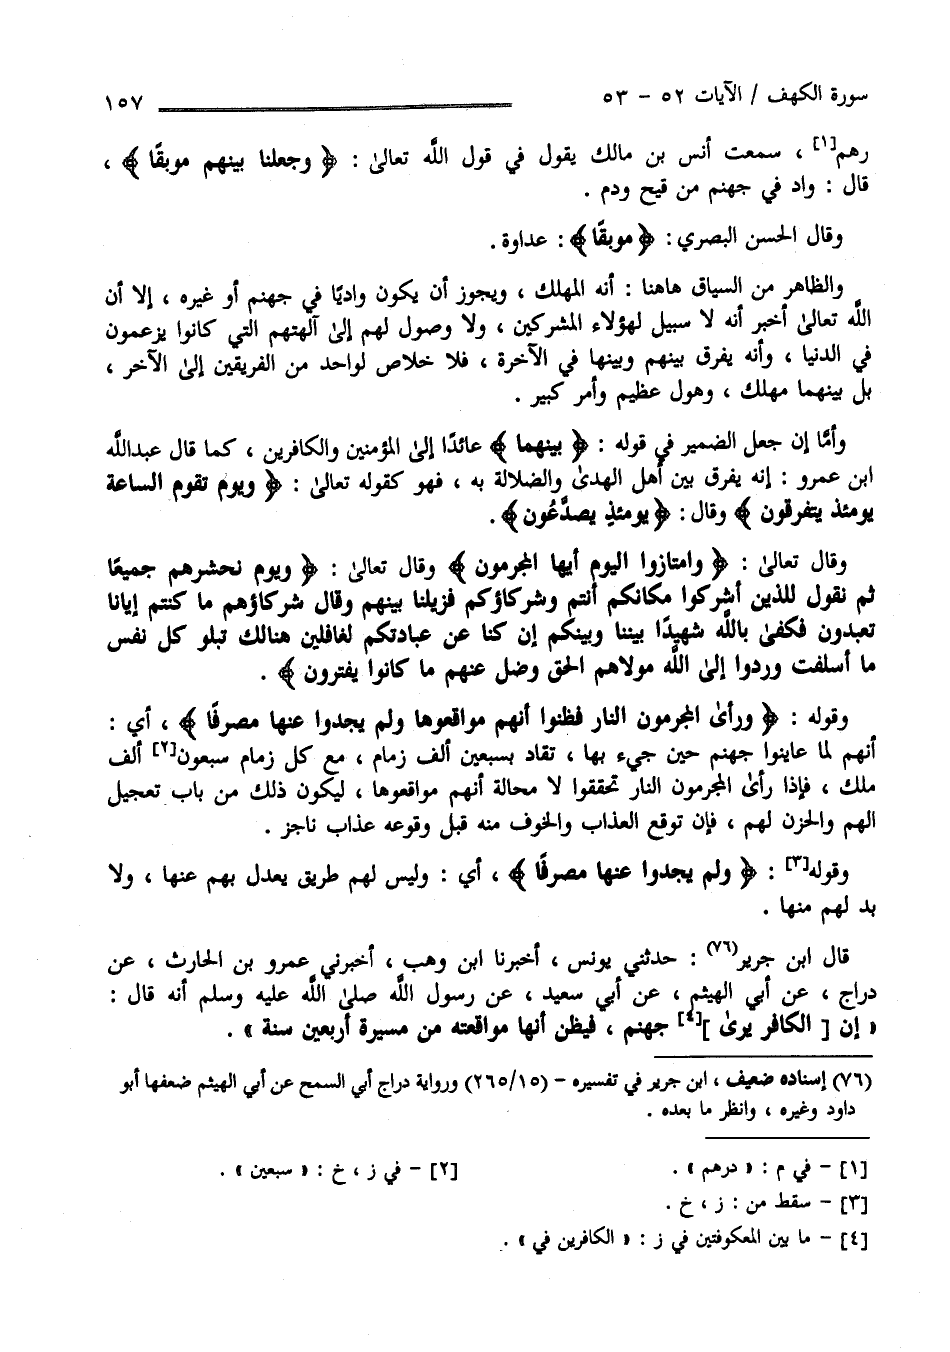 سورة الكهف / الآيات ٥٢ - ٥٣ ١٥٧
رهم[١] ، سمعت أنس بن مالك يقول في قول اللَّه تعالىٰ : ﴿ وجعلنا بينهم موبقًا ﴾ ،
قال : واد في جهنم من قيح ودم .
وقال الحسن البصري : ﴿ موبقًا ﴾ : عداوة .
والظاهر من السياق هاهنا : أنه المهلك ، ويجوز أن يكون واديًا في جهنم أو غيره ، إلا أن
اللَّه تعالىٰ أخبر أنه لا سبيل لهؤلاء المشركين ، ولا وصول لهم إلىٰ آلهتهم التي كانوا يزعمون
في الدنيا ، وأنه يفرق بينهم وبينها في الآخرة ، فلا خلاص لواحد من الفريقين إلىٰ الآخر ،
بل بينهما مهلك ، وهول عظيم وأمر كبير .
وأمَّا إن جعل الضمير في قوله : ﴿ بينهما ﴾ عائدًا إلىٰ المؤمنين والكافرين ، كما قال عبداللَّه
ابن عمرو : إنه يفرق بين أهل الهدىٰ والضلالة به ، فهو كقوله تعالىٰ : ﴿ ويوم تقوم الساعة
يومئذ يتفرقون ﴾ وقال : ﴿ يومئذٍ يصدَّعُون ﴾ .
وقال تعالىٰ : ﴿ وامتازوا اليوم أيها المجرمون ﴾ وقال تعالىٰ : ﴿ ويوم نحشرهم جميعًا
ثم نقول للذين أشركوا مكانكم أنتم وشركاؤكم فزيلنا بينهم وقال شركاؤهم ما كنتم إيانا
تعبدون فكفىٰ باللَّه شهيدًا بيننا وبينكم إن كنا عن عبادتكم لغافلين هنالك تبلو كل نفس
ما أسلفت وردوا إلىٰ اللَّه مولاهم الحق وضل عنهم ما كانوا يفترون ﴾ .
وقوله : ﴿ ورأىٰ المجرمون النار فظنوا أنهم مواقعوها ولم يجدوا عنها مصرفًا ﴾ ، أي :
أنهم لما عاينوا جهنم حين جيء بها ، تقاد بسبعين ألف زمام ، مع كل زمام سبعون[٢] ألف
ملك ، فإذا رأىٰ المجرمون النار تحققوا لا محالة أنهم مواقعوها ، ليكون ذلك من باب تعجيل
الهم والحزن لهم ، فإن توقع العذاب والخوف منه قبل وقوعه عذاب ناجز .
وقوله[٣] : ﴿ ولم يجدوا عنها مصرفًا ﴾ ، أي : وليس لهم طريق يعدل بهم عنها ، ولا
بد لهم منها .
قال ابن جرير(٧٦) : حدثني يونس ، أخبرنا ابن وهب ، أخبرني عمرو بن الحارث ، عن
دراج ، عن أبي الهيثم ، عن أبي سعيد ، عن رسول اللَّه صلىٰ اللَّه عليه وسلم أنه قال :
« إن [ الكافر يرىٰ ][٤] جهنم ، فيظن أنها مواقعته من مسيرة أربعين سنة » .
(٧٦) إسناده ضعيف ، ابن جرير في تفسيره - (٢٦٥/١٥) ورواية دراج أبي السمح عن أبي الهيثم ضعفها أبو
داود وغيره ، وانظر ما بعده .
[١] - في م : « درهم » . [٢] - في ز ، خ : « سبعين » .
[٣] - سقط من : ز ، خ .
[٤] - ما بين المعكوفتين في ز : « الكافرين في » .